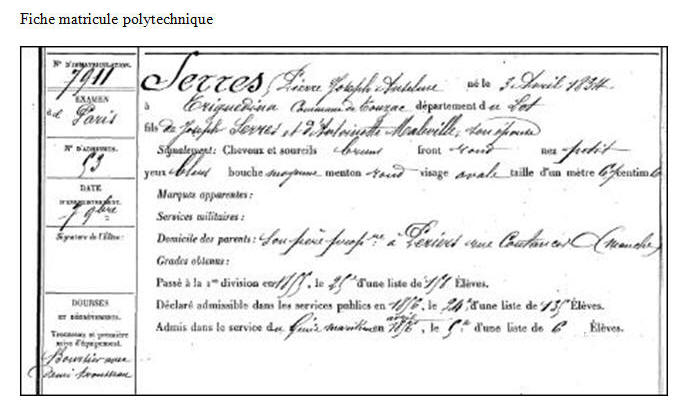 Fiche matricule polytechnique
N° D'IMMATRICULATION.
7911
EXAMEN
d Paris
N° D'ADMISS.
53
DATE
D'ENREGISTREMENT.
7 9bre
Signature de l'Élève:
BOURSES
ET DÉGRÈVEMENTS.
Trousseau et première
mise d'équipement.
Boursier avec
demi trousseau
Serres, Pierre Joseph Antelme né le 3 Avril 1834
à Triguedina Commune de Touzac département du Lot
fils de Joseph Serres et d'Antoinette Maleville, son épouse
Signalement: Cheveux et sourcils bruns front rond nez petit
yeux bleus bouche moyenne menton rond visage ovale taille d'un mètre 67 centim
Marques apparentes:
Services militaires:
Domicile des parents: Son père prop.re à Périers rue Coutances (manche)
Grades obtenus:
Passé à la 1re division en 1855, le 25e d'une liste de 151 Élèves.
Déclaré admissible dans les services publics en 1856, le 24e, d'une liste de 135 Élèves.
Admis dans le service du Génie maritime en 1856, le 5e d'une liste de 6 Élèves.